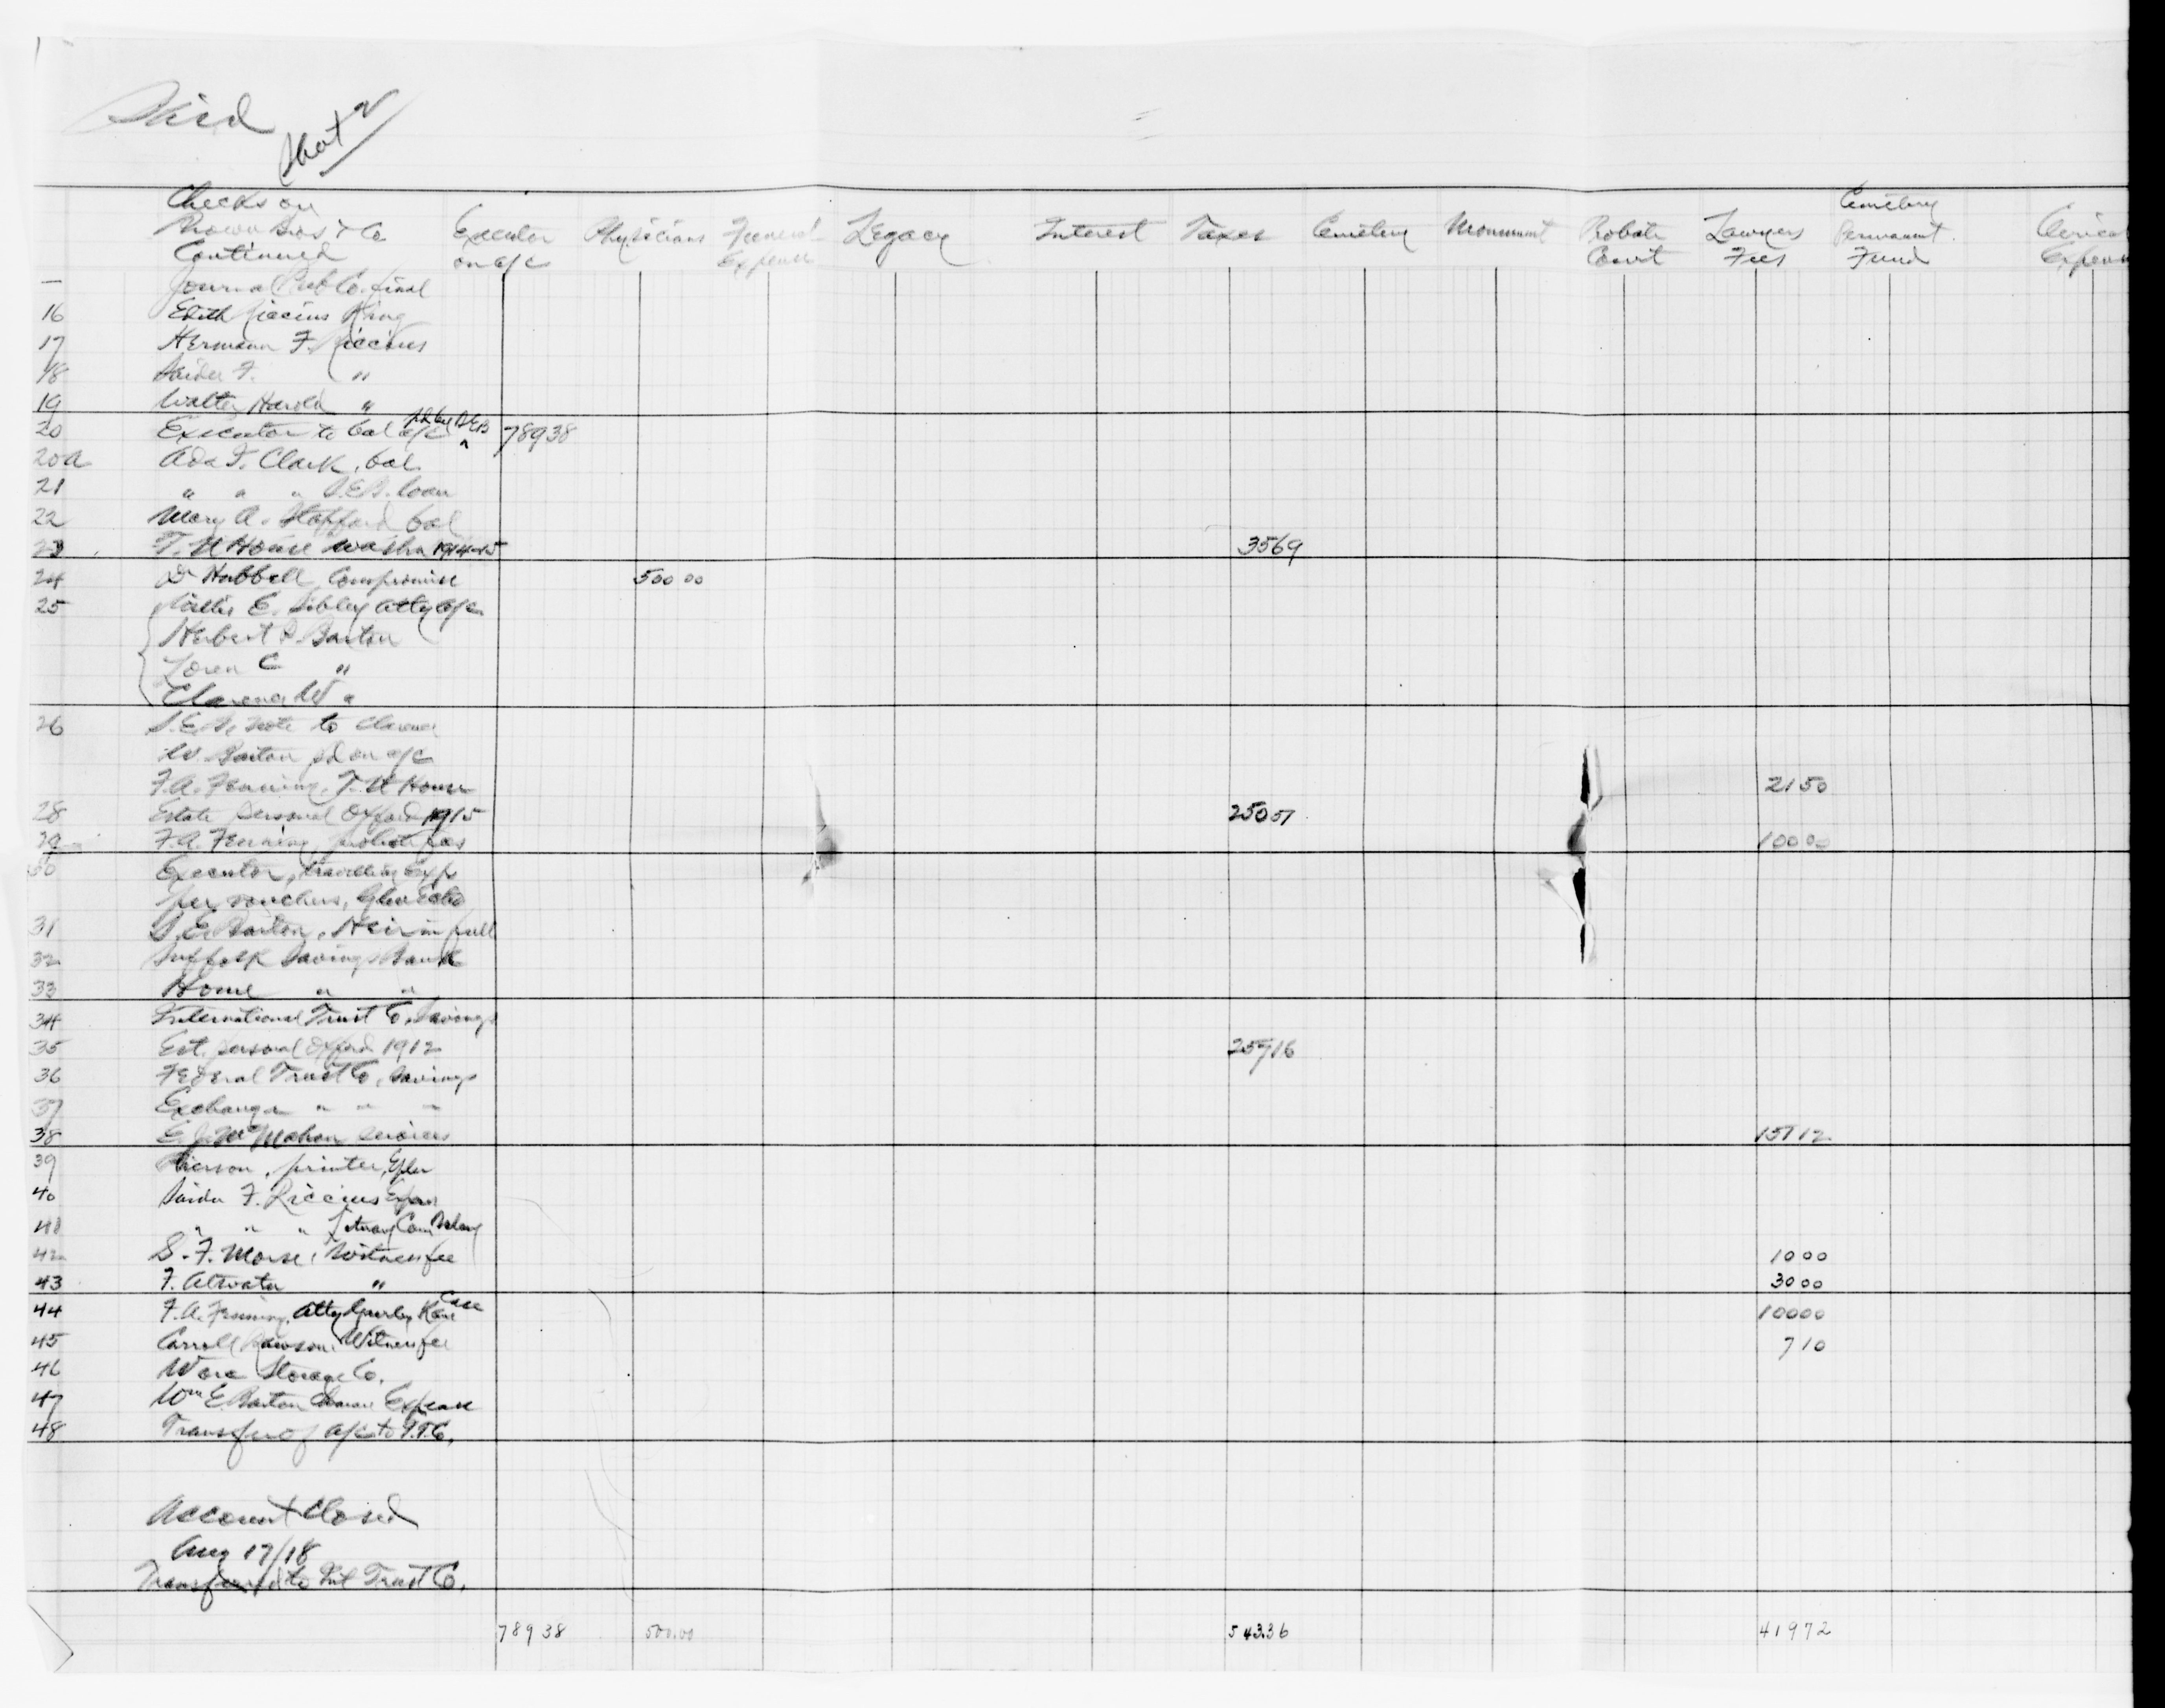 Third
Sheet 2
Checks on
Brown Bros & Co
Continued
Executor
on a/c
Physicians
Funeral
Expense
Legacy
Interest
Taxes
Cemetery
Monument
Probate
Court
Lawyers
Fees
Cemetery
Permanent
Fund
Expen
— Journal Pub Co. final
16 Edith Riccius King
17 Hermann F. Riccius
18 Saidee F. "
19 Walter Harold "
20 Executor to bal a/c pd by SEB 789 38
20a Ada F. Clark, bal
21 " " " S.E.B. loan
22 Mary A. Stafford bal
23 T. U House Washn 1914-15 35 69
24 Dr Hubbell Compromise 500 00
25 Willis E. Sibley atty a/c
Herbert Barton
Loren C "
Clarence W "
26 S.E.B. note to Clarence
W. Barton pd on a/c
F.A. Fenning, T. U House 21 50
28 Estate personal Oxford 1915 250 51
29 F.A. Fenning, probate fees 100 00
30 Executor, travelling exp
per vouchers, Glen Echo
31 S.E. Barton, Heir in full
32 Suffolk Savings Bank
33 Home " "
34 International Trust Co, Savings
35 Est. personal Oxford 1912 257 16
36 Federal Trust Co, Savings
37 Exchange " " "
38 E. J. McMahon services 151 12
39 Pierson, printer,
40 Saidee F. Riccius
41 " " "
42 S. F. Morse, Witness fee 10 00
43 F. Atwater " 30 00
44 F.A. Fenning, Atty Case 100 00
45 Carroll Dawson, Witness fee 7 10
46 Worc Storage Co.
47 Wm E. Barton Expense
48 Transfer of a/c to I.T.Co.
Account Closed
Aug 17/18
Transferred to Int Trust Co.
789 38 500.00 543.36 419 72